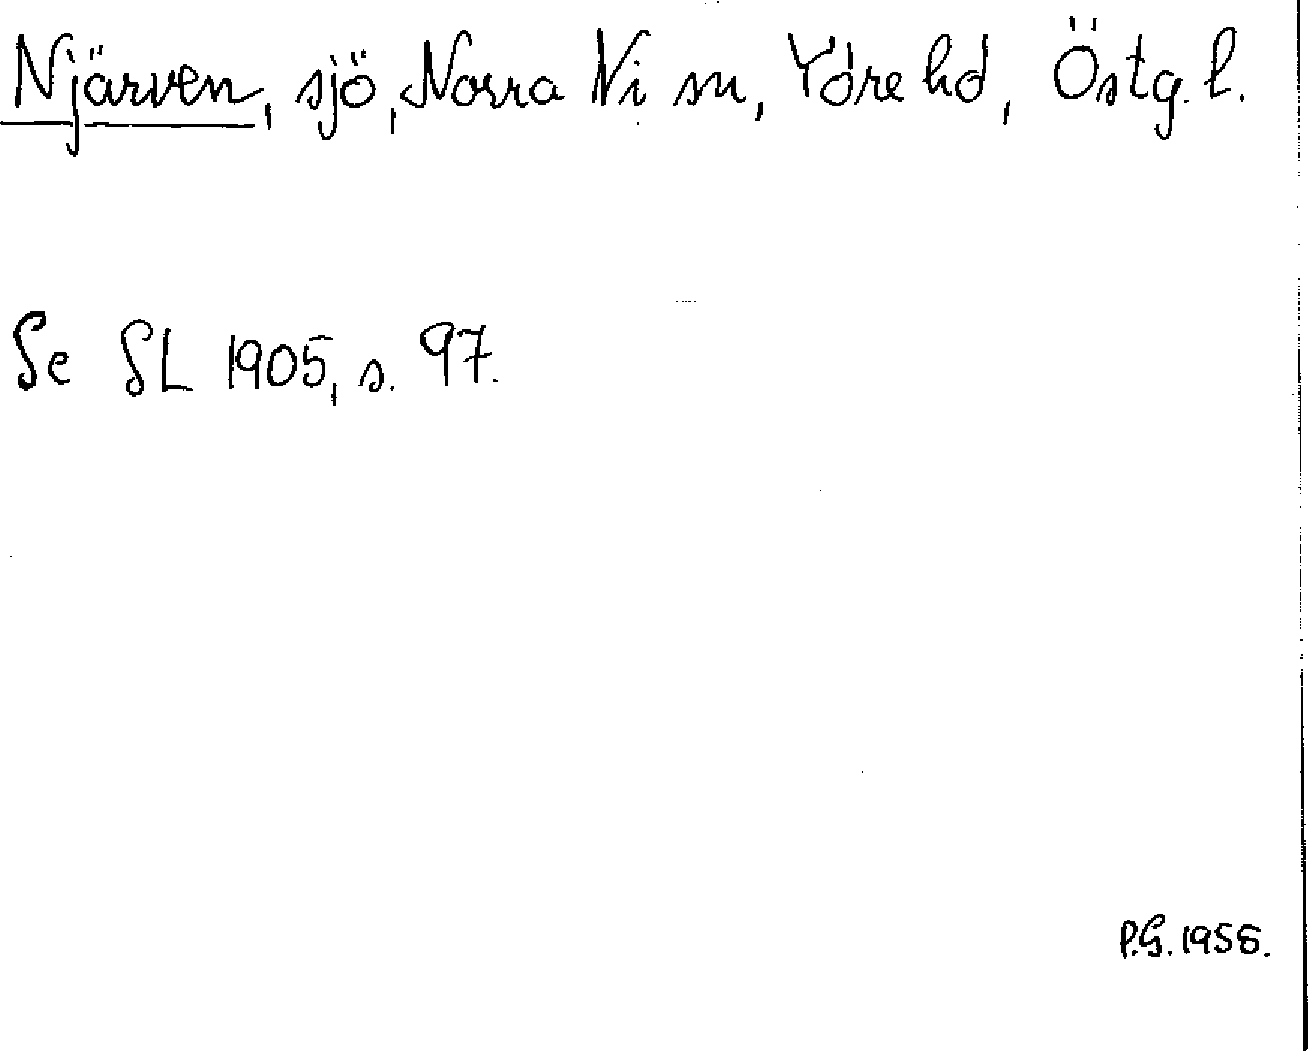 Njärven, sjö, Norra Vi sn, Ydre hd, Östg. l.
Se SL 1905, s. 97.
P.G. 1955.